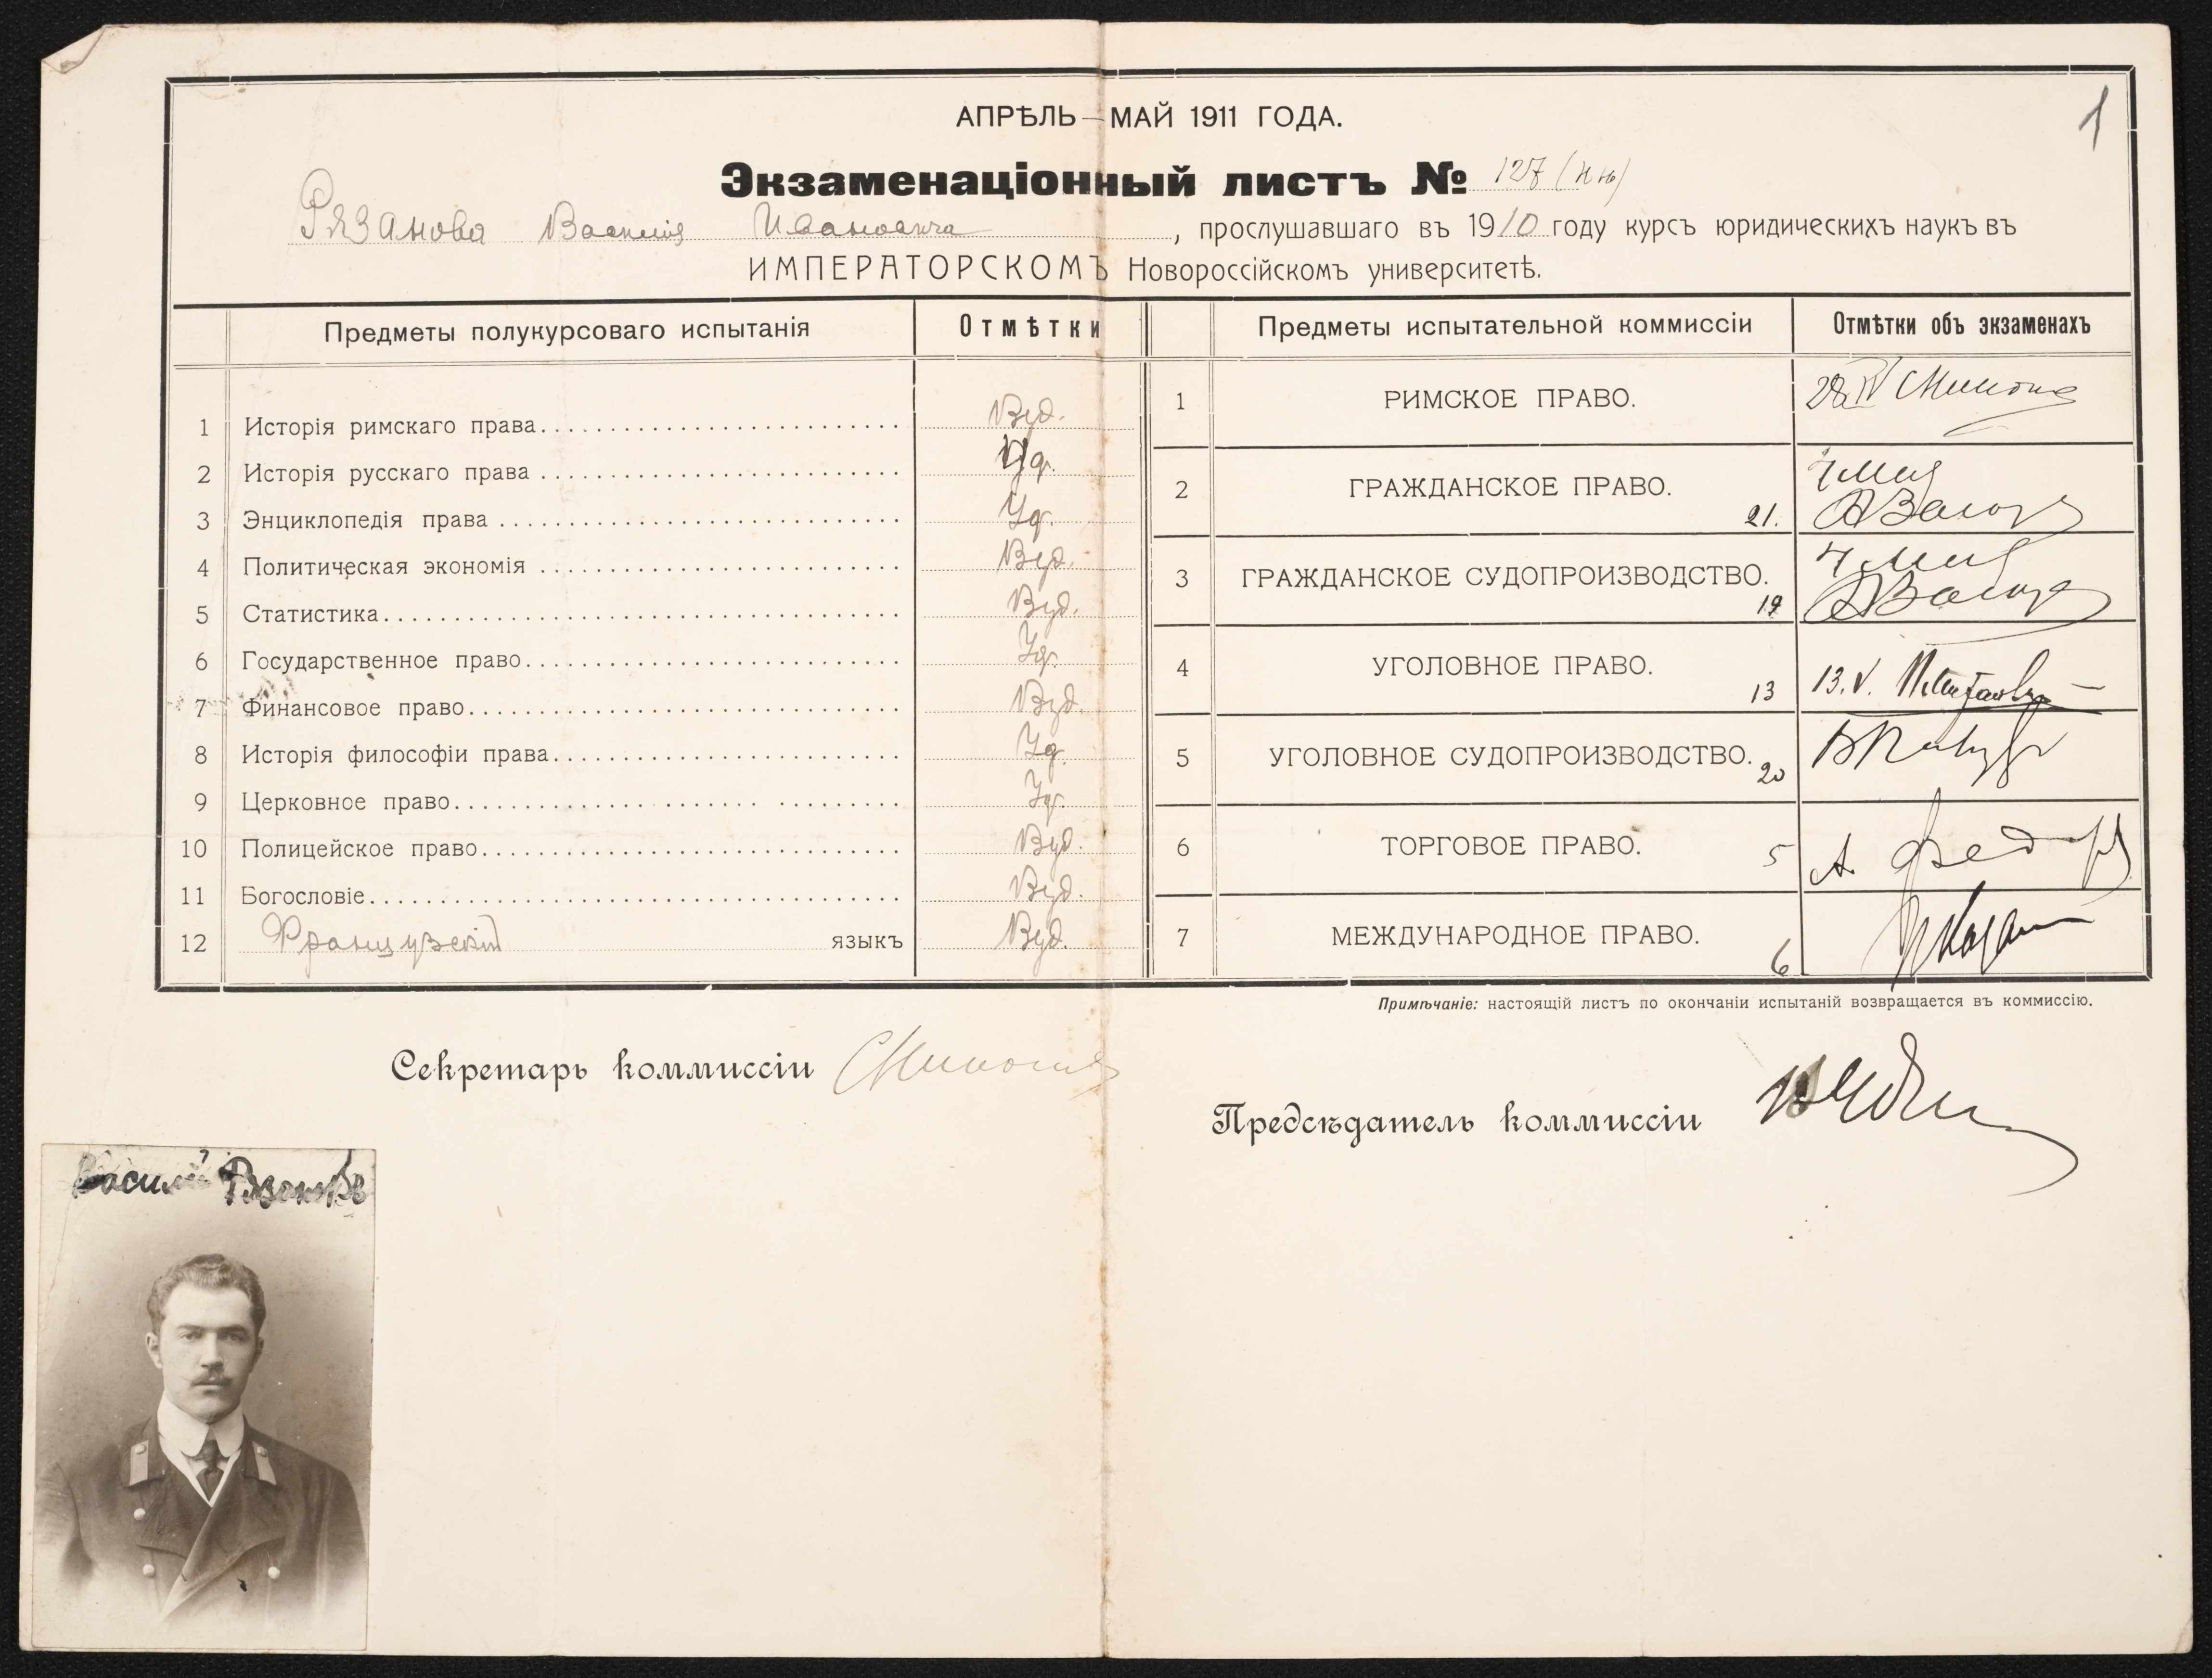 1
АПРѢЛЬ—МАЙ 1911 ГОДА.
Экзаменаціонный листъ № 127
Рязанова Василія Ивановича, прослушавшаго въ 1910 году курсъ юридическихъ наукъ въ
ИМПЕРАТОРСКОМЪ Новороссійскомъ университетѣ.
Предметы полукурсоваго испытанія Отмѣтки
1 Исторія римскаго права Вуд.
2 Исторія русскаго права Уд.
3 Энциклопедія права Уд.
4 Политическая экономія Вуд.
5 Статистика Вуд.
6 Государственное право Уд.
7 Финансовое право Вуд.
8 Исторія философіи права Уд.
9 Церковное право Уд.
10 Полицейское право Вуд.
11 Богословіе Вуд.
12 Французскій языкъ Вуд.
Предметы испытательной коммиссіи Отмѣтки объ экзаменахъ
1 РИМСКОЕ ПРАВО. 28 IV
2 ГРАЖДАНСКОЕ ПРАВО. 21. 7 мая
3 ГРАЖДАНСКОЕ СУДОПРОИЗВОДСТВО. 19 7 мая
4 УГОЛОВНОЕ ПРАВО. 13 13.V.
5 УГОЛОВНОЕ СУДОПРОИЗВОДСТВО. 20
6 ТОРГОВОЕ ПРАВО. 5 А.
7 МЕЖДУНАРОДНОЕ ПРАВО. 6
Примѣчаніе: настоящій листъ по окончаніи испытаній возвращается въ коммиссію.
Секретарь коммиссіи
Предсѣдатель коммиссіи
Василій Рязановъ